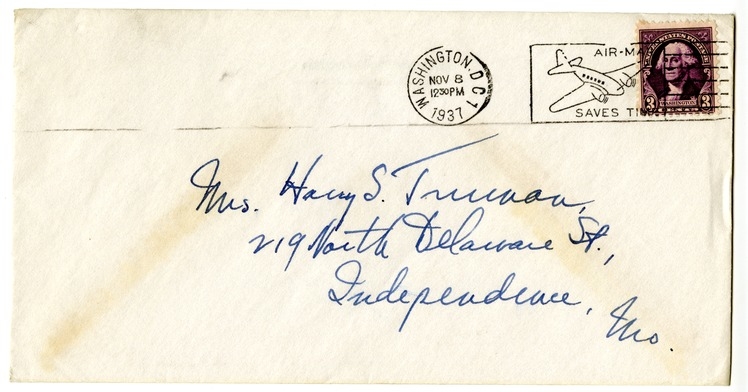 WASHINGTON, D.C. 1
NOV 8
12 30 PM
1937
AIR-MA
SAVES TI
UNITED STATES POSTAGE
3 WASHINGTON 3
Mrs. Harry S. Truman,
219 North Delaware St.,
Independence, Mo.